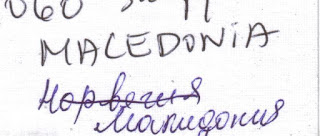 MACEDONIA
Норвегия
Макидония